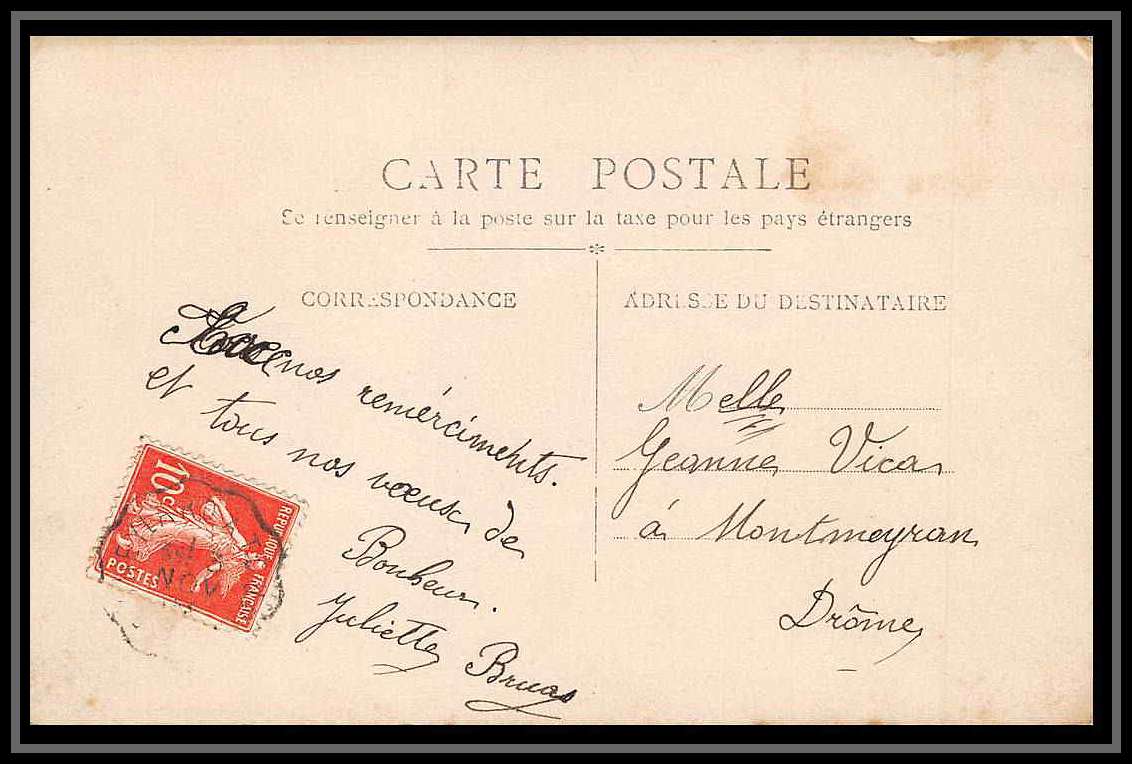 CARTE POSTALE
Se renseigner à la poste sur la taxe pour les pays étrangers
CORRESPONDANCE
ADRESSE DU DESTINATAIRE
nos remérciments.
et tous nos voeux de
Bonheur.
Juliette Bruas
Melle
Jeanne Vicat
à Montmeyran
Drôme
10c
REPUBLIQUE FRANÇAISE
POSTES
NOV